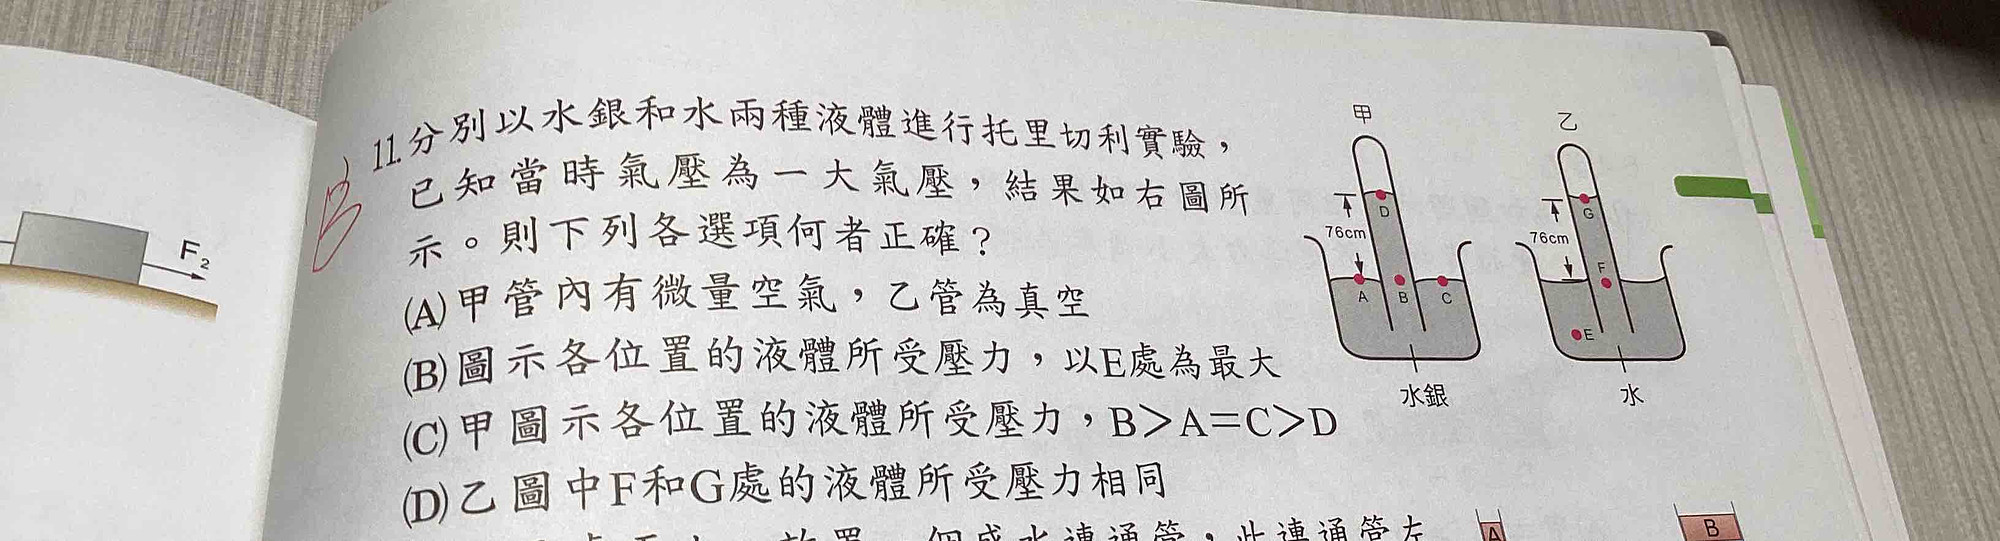 F₂
B
11.分別以水銀和水兩種液體進行托里切利實驗，
已知當時氣壓為一大氣壓，結果如右圖所
示。則下列各選項何者正確？
(A)甲管內有微量空氣，乙管為真空
(B)圖示各位置的液體所受壓力，以E處為最大
(C)甲圖示各位置的液體所受壓力，B＞A＝C＞D
(D)乙圖中F和G處的液體所受壓力相同
甲
D
76cm
A B C
水銀
乙
G
76cm
F
E
水
A
B